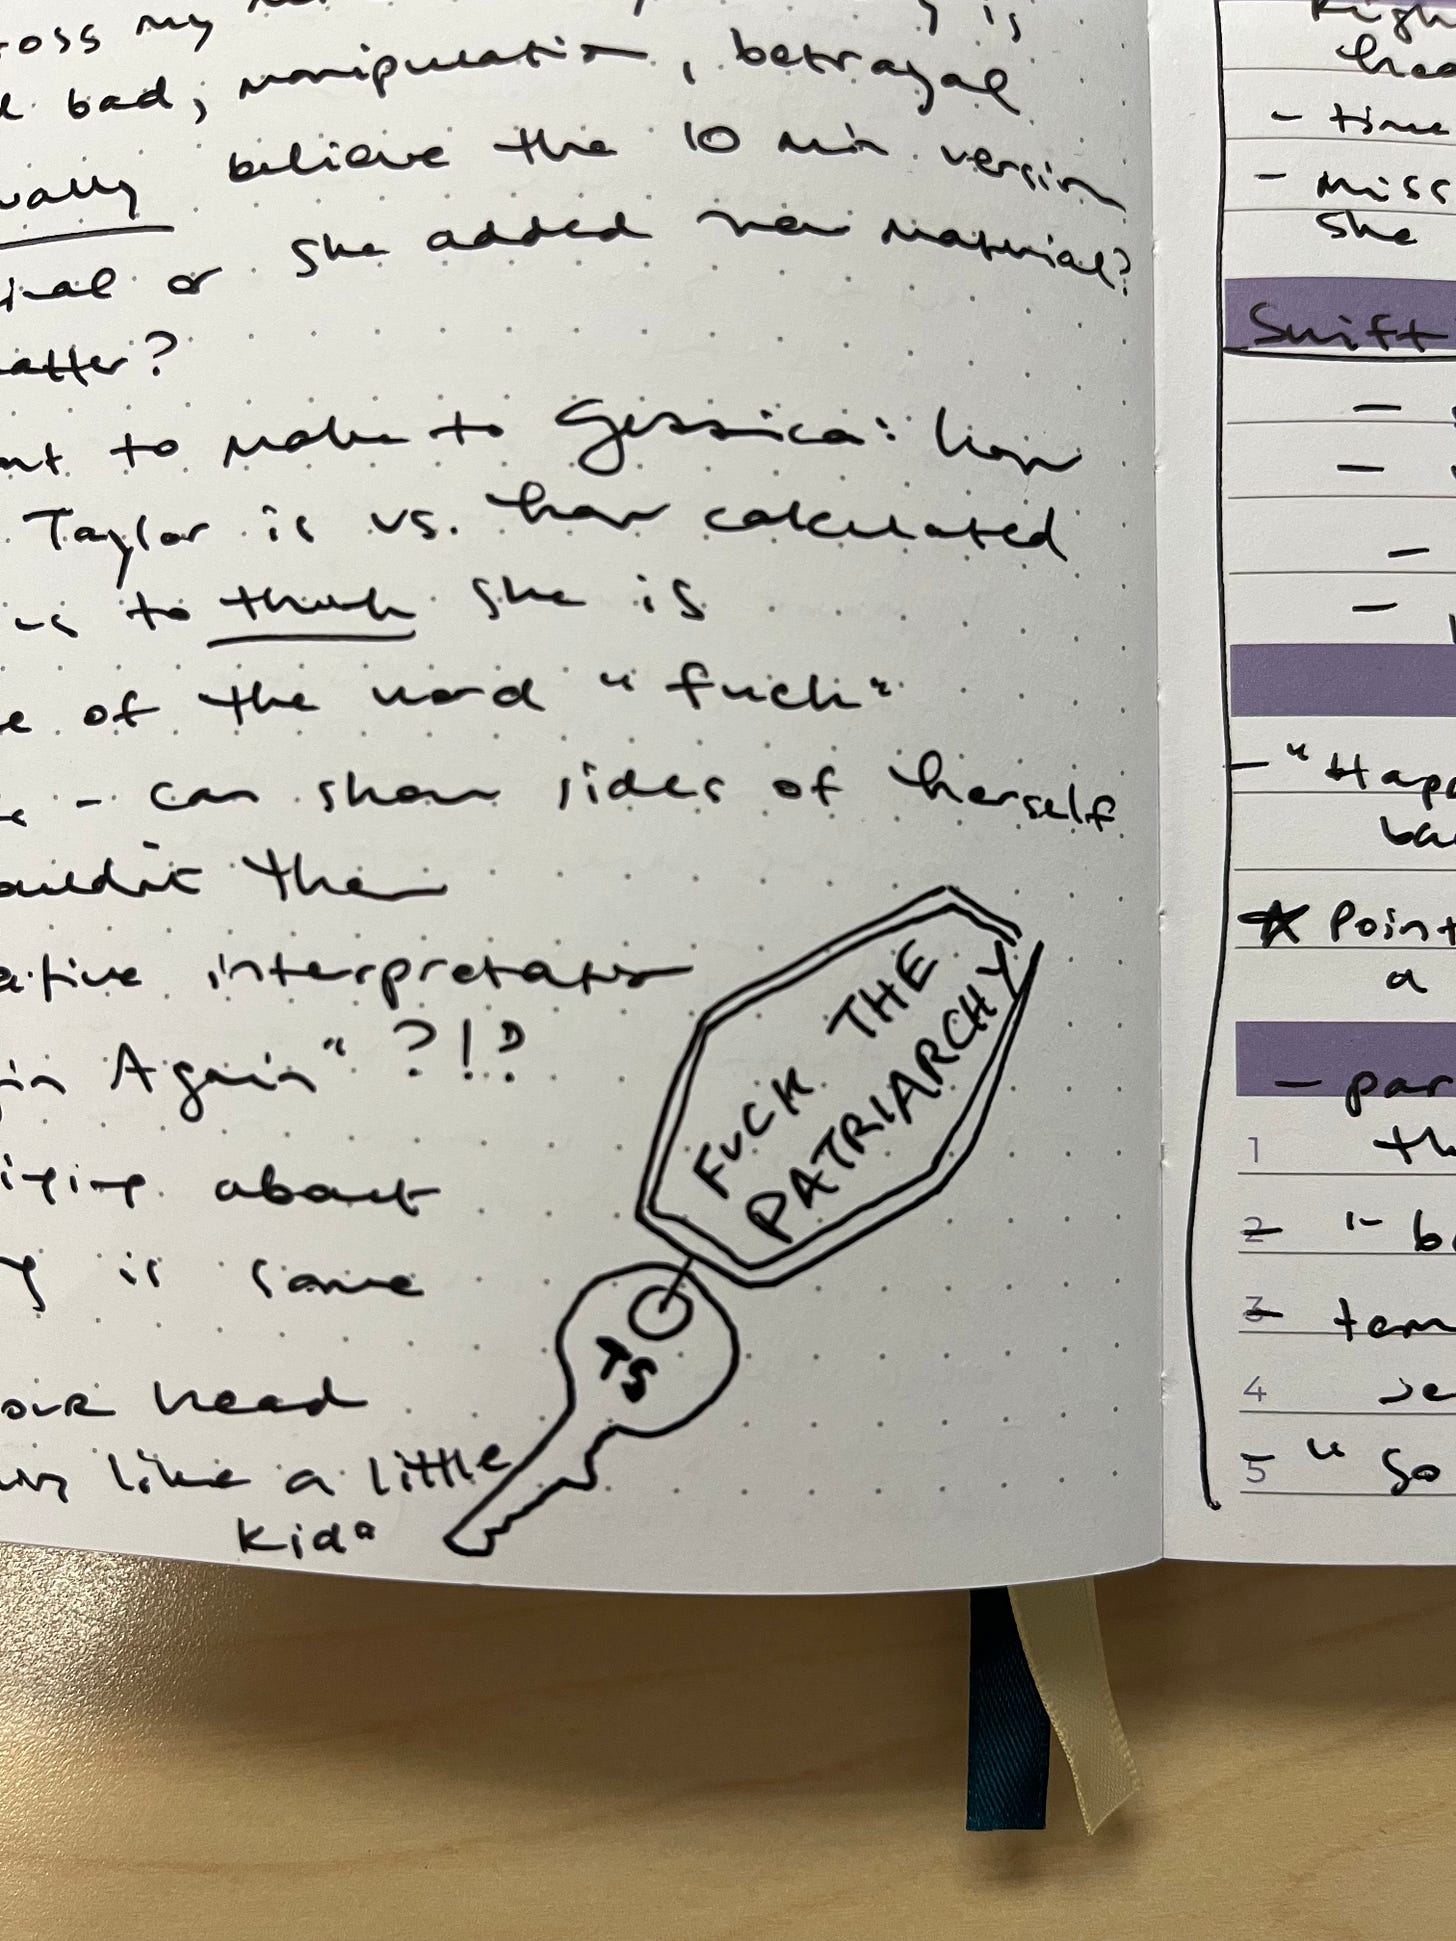 oss my is
bad, manipulation, betrayal
ually believe the 10 min version
inal or she added new material?
atter?
nt to make to Jessica: how
Taylor is vs. how calculated
us to think she is
e of the word "fuck"
- can show sides of herself
ouldn't then
ative interpretation
in Again" ?!?
about
is some
our head
like a little
kid"
FUCK THE
PATRIARCHY
TS
Righ
hea
- time
- miss
she
Swift
-
-
-
-
- "Happ
ba
★ Point
a
- par
1 th
2 "- b
3 tem
4 se
5 " So